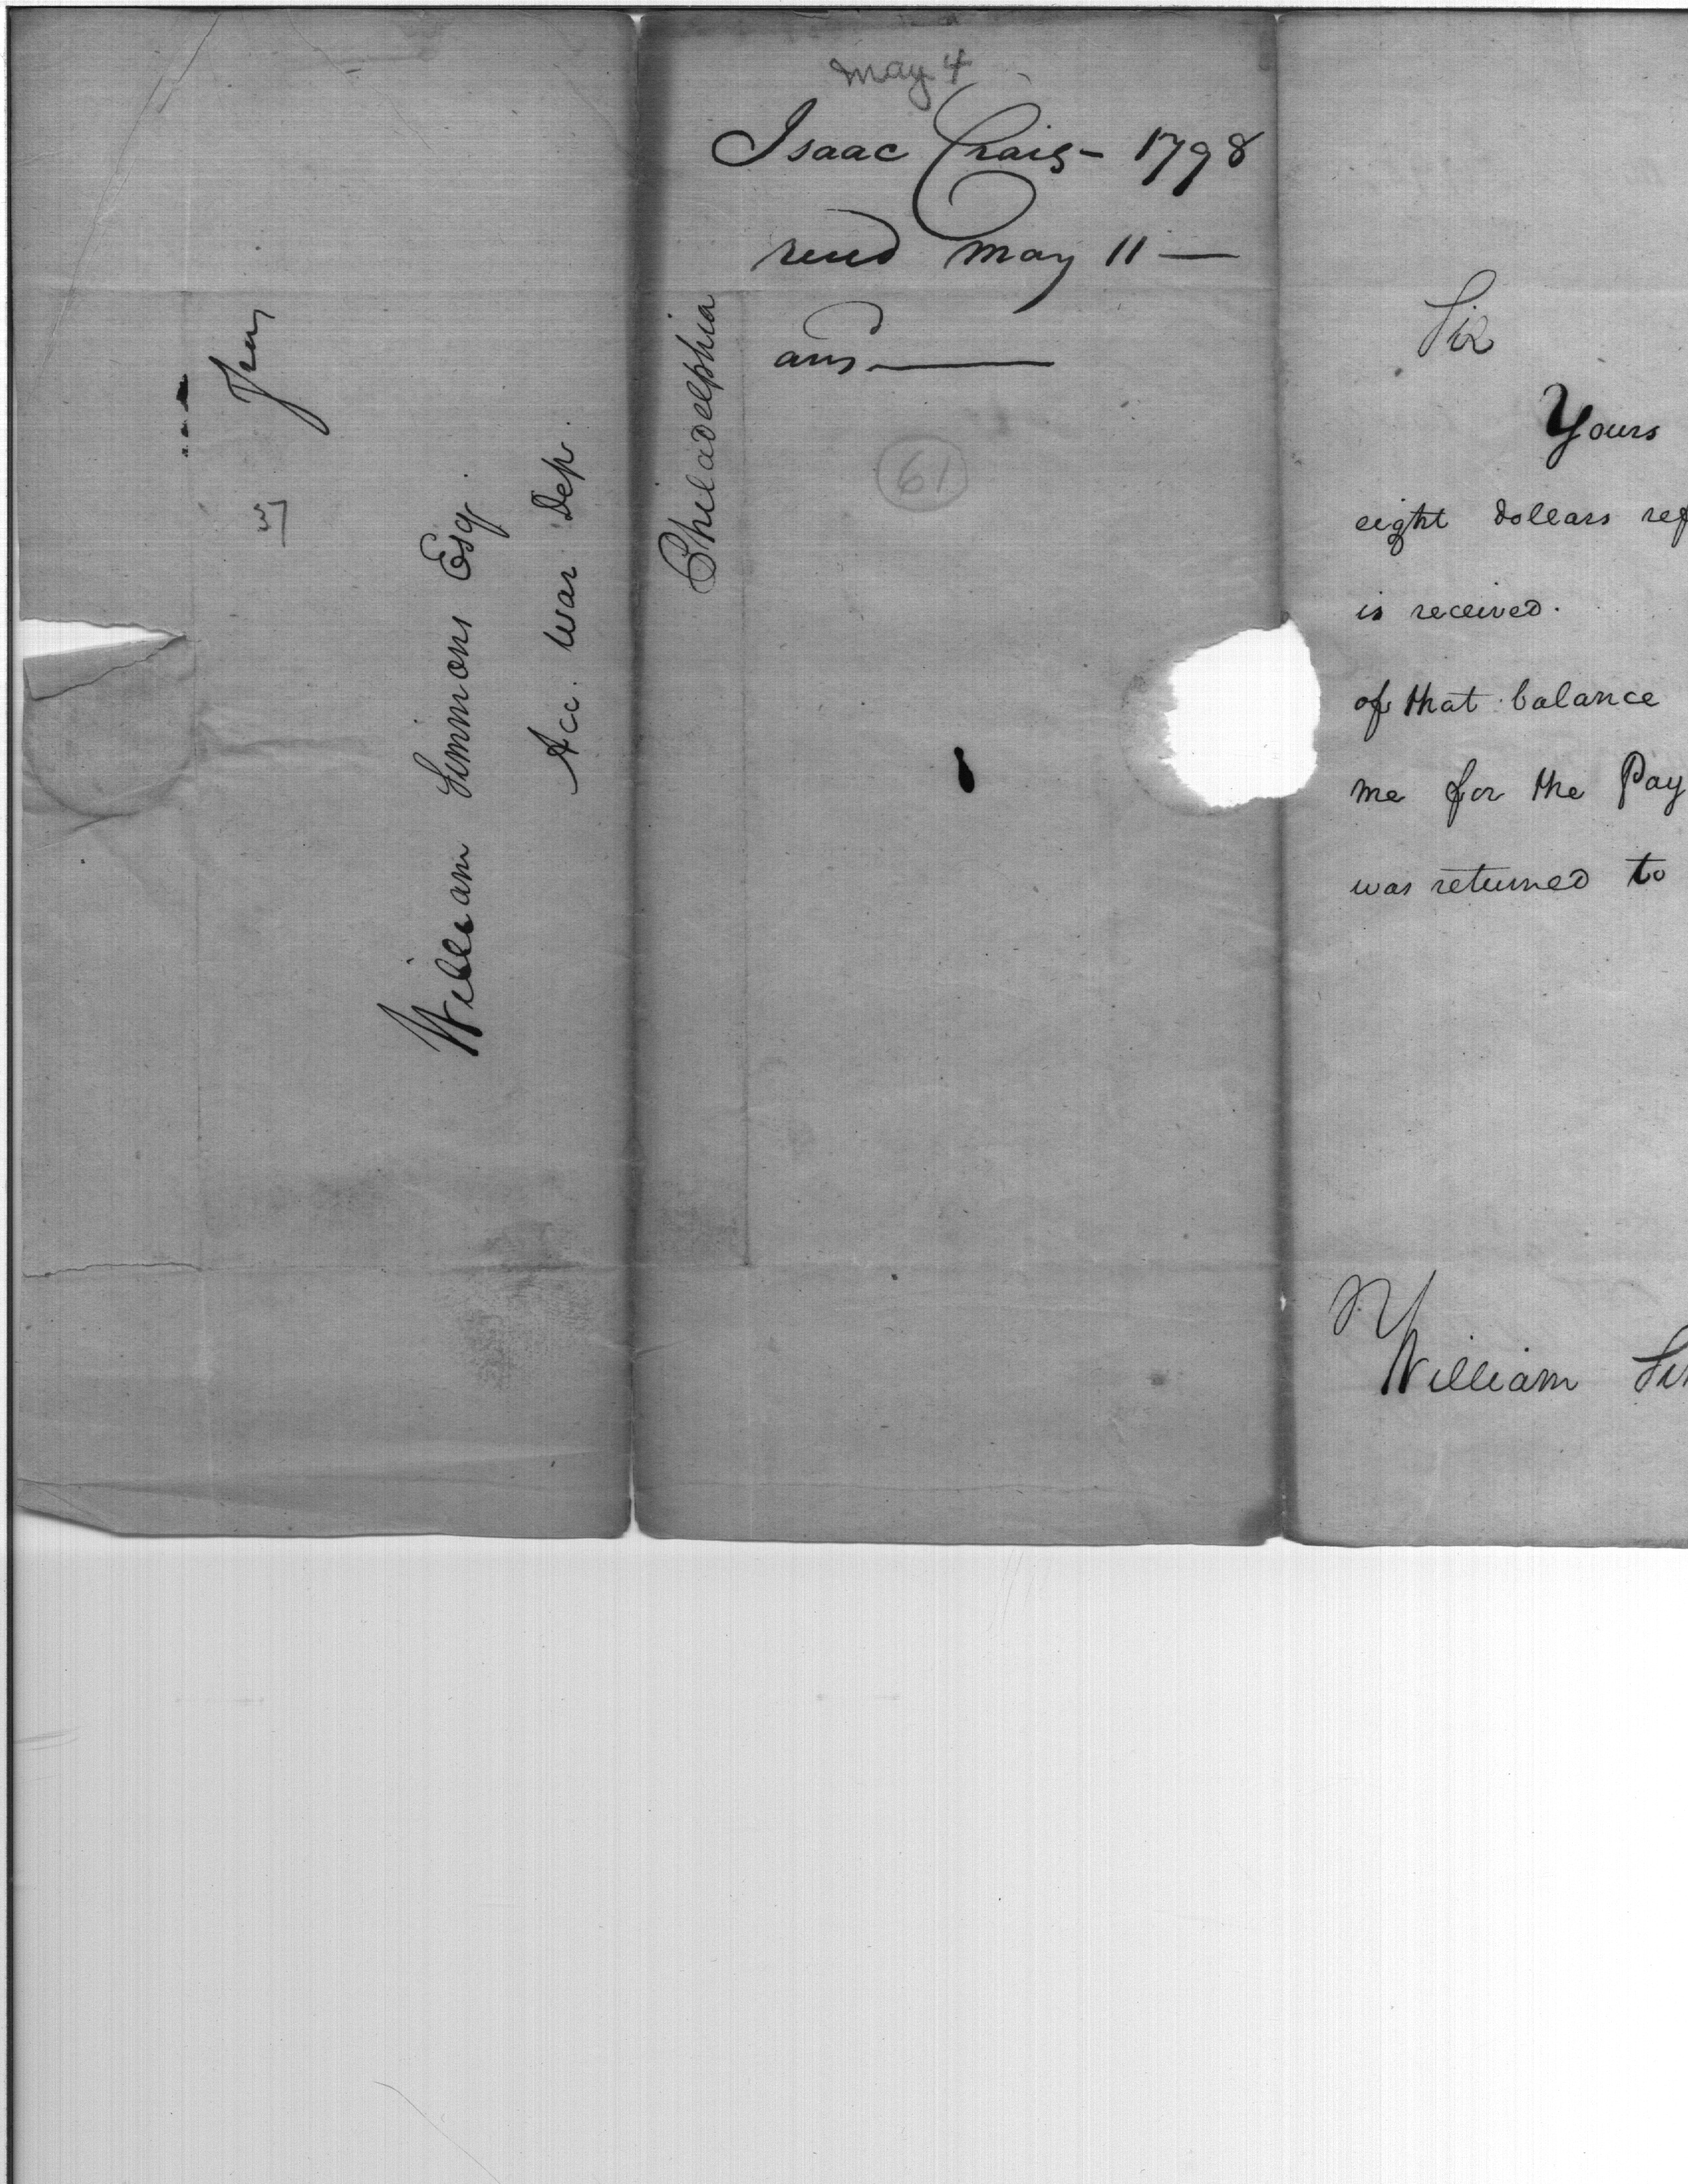 Free
William Simmons Esq.
Acc. War Dep.
Philadelphia
May 4
Isaac Craig - 1798
recd May 11 —
ans ———
61
Sir
Yours
eight dollars ref
is received.
of that balance
me for the Pay
was returned to
William Sim